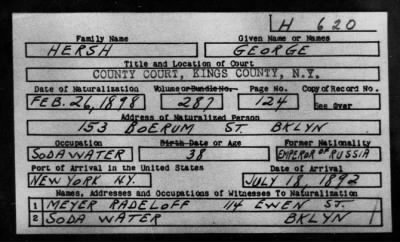 H 620
Family Name Given Name or Names
HERSH GEORGE
Title and Location of Court
COUNTY COURT, KINGS COUNTY, N.Y.
Date of Naturalization Volume or Bundle No. Page No. Copy of Record No.
FEB. 26, 1898 287 124 See Over
Address of Naturalized Person
153 BOERUM ST. BKLYN
Occupation Birth Date or Age Former Nationality
SODA WATER 38 EMPEROR OF RUSSIA
Port of Arrival in the United States Date of Arrival
NEW YORK N.Y. JULY 18, 1892
Names, Addresses and Occupations of Witnesses To Naturalization
1 MEYER RADELOFF 114 EWEN ST.
2 SODA WATER BKLYN